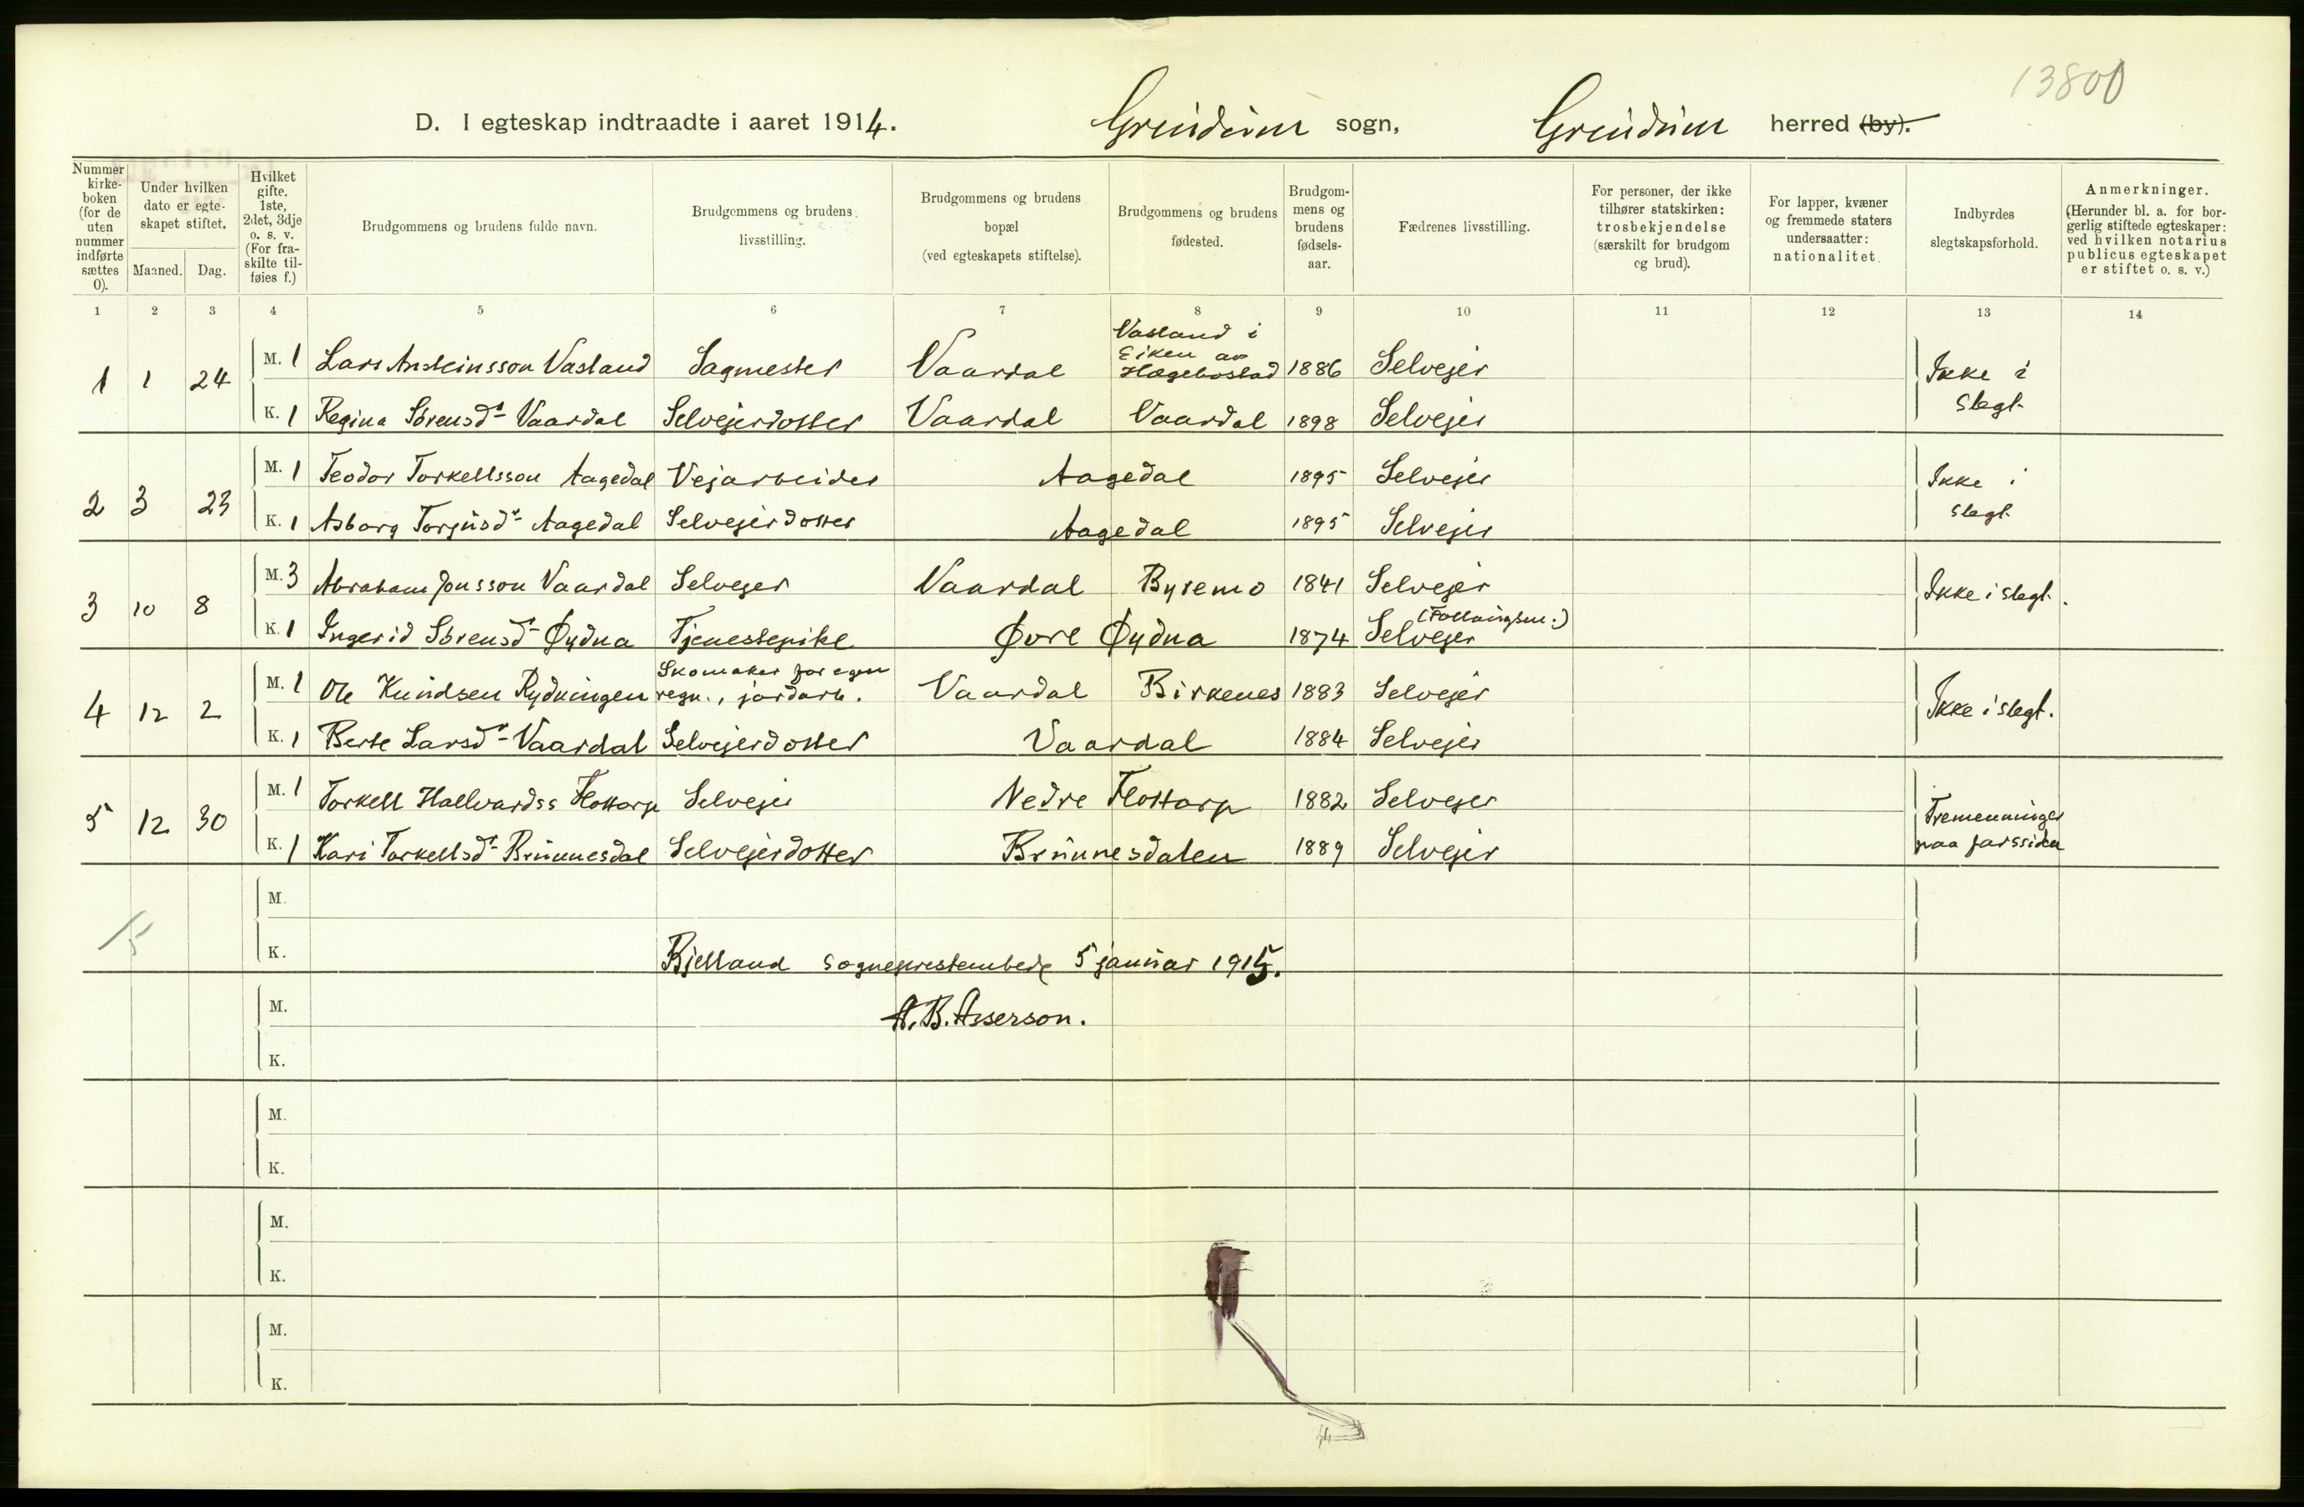 13800
D. I egteskap indtraadte i aaret 1914. Grindum sogn, Grindum herred (by).
Nummer kirkeboken (for de uten nummer indførte sættes 0).
Under hvilken dato er egteskapet stiftet.
Maaned. Dag.
Hvilket gifte. 1ste, 2det, 3dje o. s. v. (For fraskilte tilføies f.)
Brudgommens og brudens fulde navn.
Brudgommens og brudens livsstilling.
Brudgommens og brudens bopæl (ved egteskapets stiftelse).
Brudgommens og brudens fødested.
Brudgommens og brudens fødselsaar.
Fædrenes livsstilling.
For personer, der ikke tilhører statskirken: trosbekjendelse (særskilt for brudgom og brud).
For lapper, kvæner og fremmede staters undersaatter: nationalitet.
Indbyrdes slegtskapsforhold.
Anmerkninger. (Herunder bl. a. for borgerlig stiftede egteskaper: ved hvilken notarius publicus egteskapet er stiftet o. s. v.)
1 2 3 4 5 6 7 8 9 10 11 12 13 14
1 1 24 M. 1 Lars Ansteinsson Vasland Sagmester Vaardal Vasland i Eiken av Hægebostad 1886 Selvejer Ikke i slegt.
K. 1 Regina Sørensd- Vaardal Selvejerdotter Vaardal Vaardal 1898 Selvejer
2 3 23 M. 1 Teodor Torkellsson Aagedal Vejarbeider Aagedal 1895 Selvejer Ikke i slegt.
K. 1 Asborg Torjusd- Aagedal Selvejerdotter Aagedal 1895 Selvejer
3 10 8 M. 3 Abraham Jonsson Vaardal Selvejer Vaardal Byremo 1841 Selvejer Ikke i slegt.
K. 1 Ingerid Sørensd- Øydna Tjenestepike Øvre Øydna 1874 Selvejer
4 12 2 M. 1 Ole Knudsen Rydningen Skomaker for egen regn., jordarb. Vaardal Birkenes 1883 Selvejer Ikke i slegt.
K. 1 Berte Larsd- Vaardal Selvejerdotter Vaardal 1884 Selvejer
5 12 30 M. 1 Torkell Hallvardss Flottorp Selvejer Nedre Flottorp 1882 Selvejer Tremenninger paa farssiden
K. 1 Kari Torkellsd- Brunnesdal Selvejerdotter Brunnesdalen 1889 Selvejer
M.
K.
5
Bjelland sogneprestembede 5 januar 1915.
M.
A. B. Asserson.
K.
M.
K.
M.
K.
M.
K.